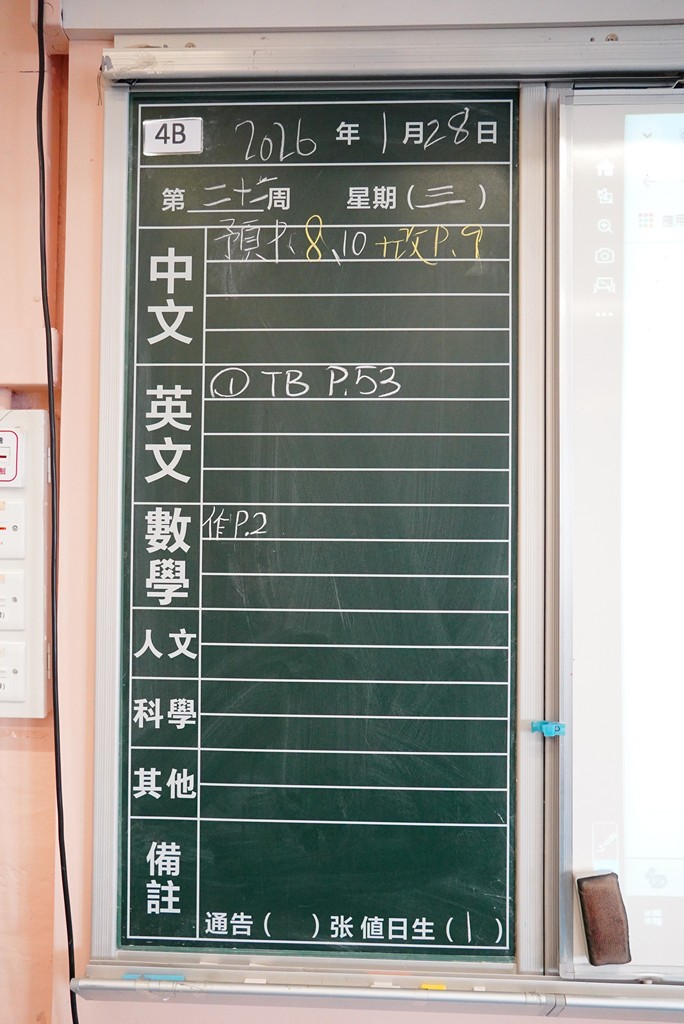 4B 2026 年 1 月 28 日
第 二十二 周 星期 ( 三 )
中文 預 8、10 +改 P.9
英文 ① TB P.53
數學 作 P.2
人文
科學
其他
備註
通告 ( ) 张 値日生 ( 1 )